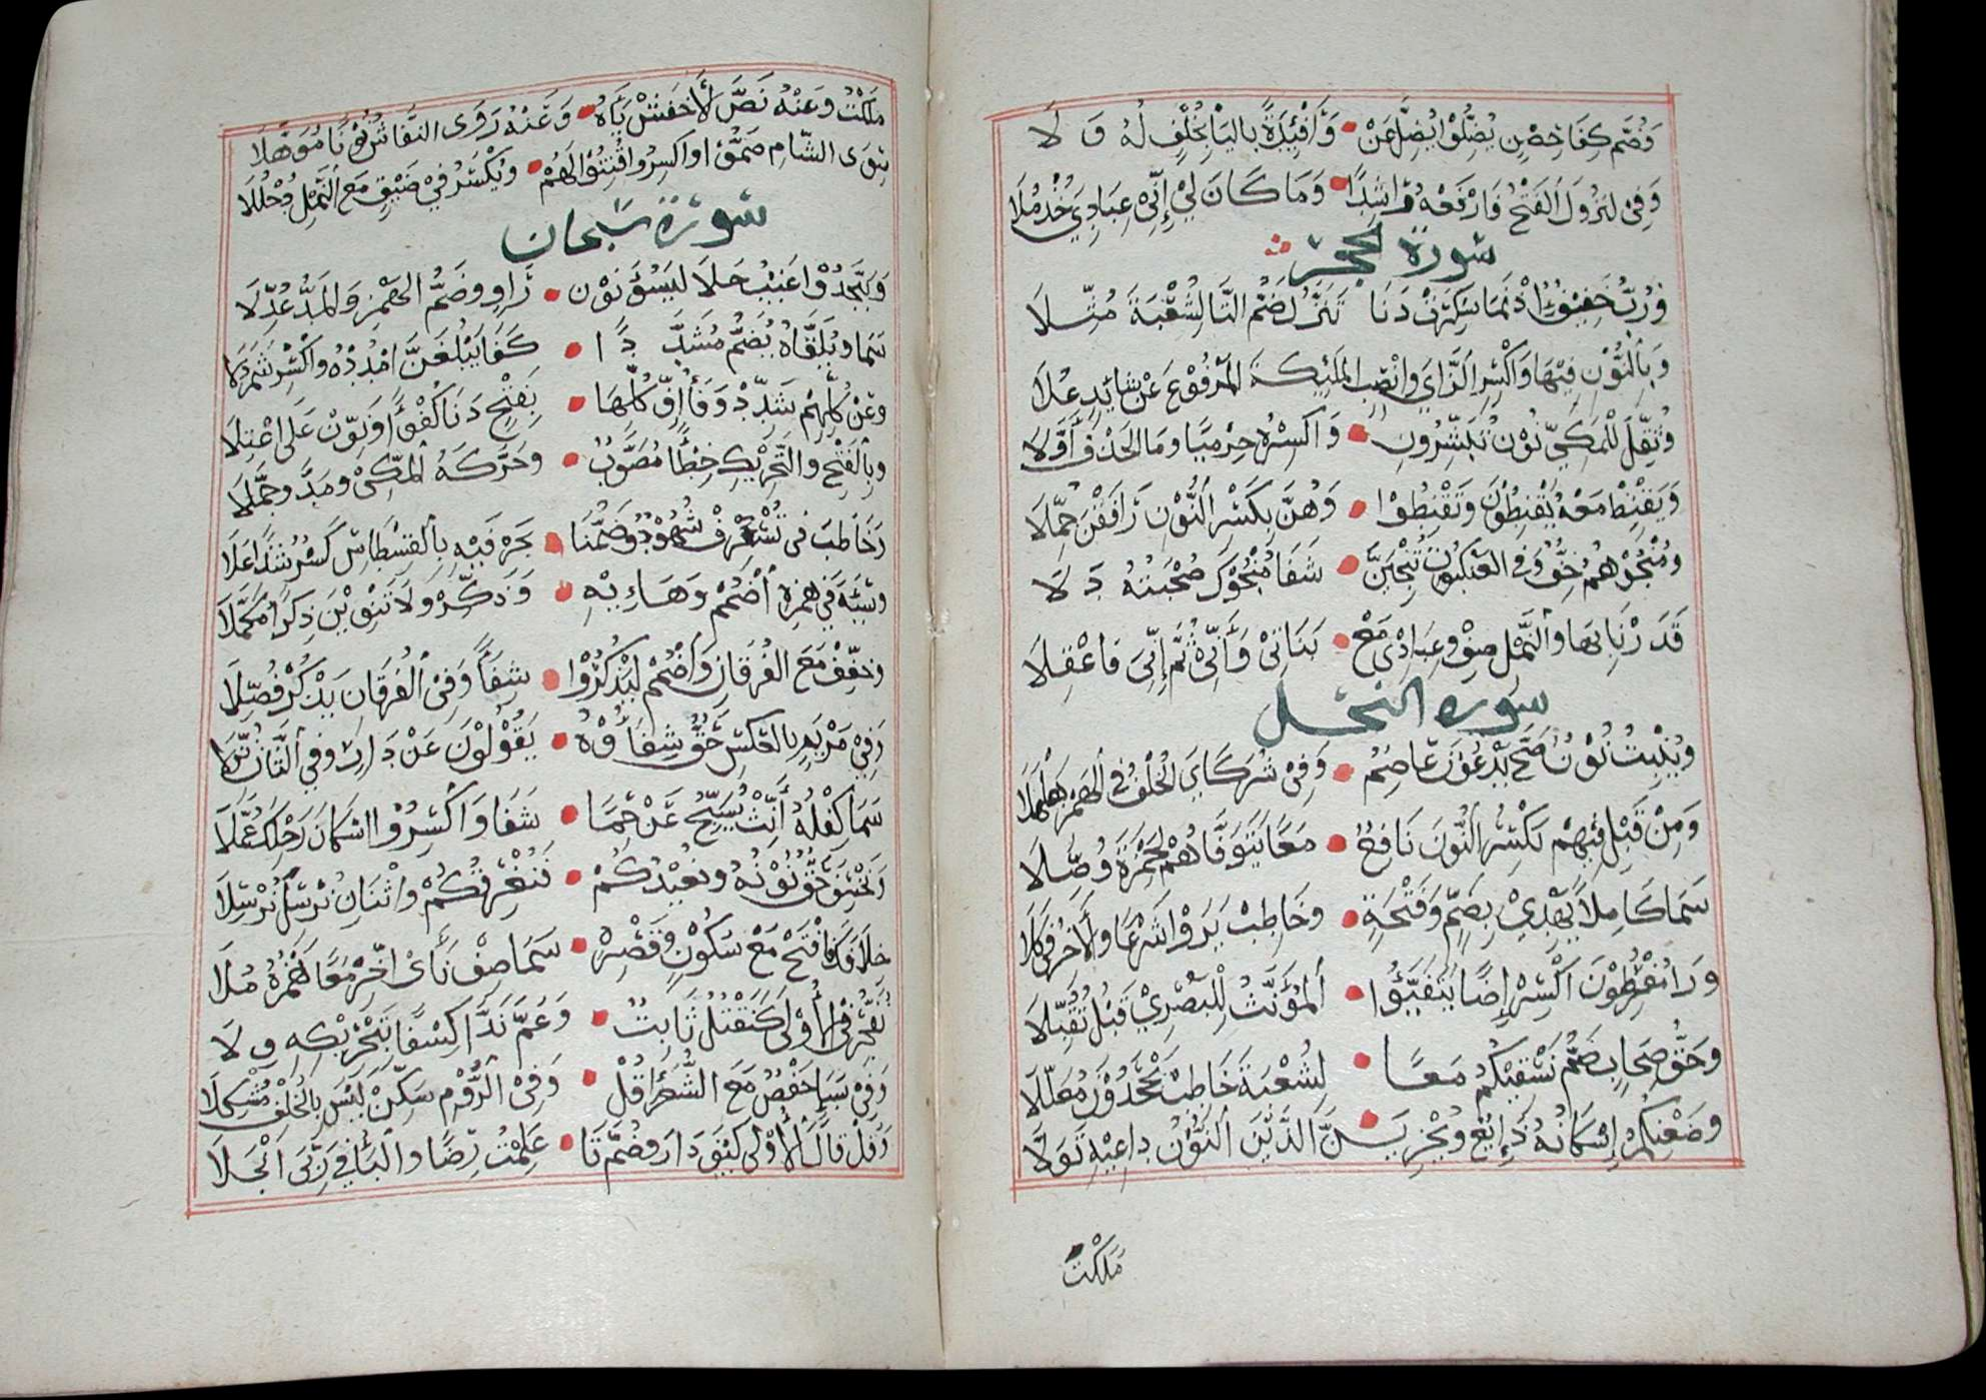 وَضُمَّ كِفَا حِصْنٍ يُضِلُّوْا يُضِلَّ عَنْ • وَأَفْئِيْدَةً بِاليَا بِخُلْفٍ لَهُ وَ لَا
وَفِيْ لِتَزُوْلَ الفَتْحُ وَارْفَعْهُ رَاشِدًا • وَمَا كَانَ لِيْ إِنِّيْ عِبَادِيَ خُذْ مُلَا
سورة الحجر
وَرُبَّ خَفِيْفٌ إِذْ نَمَا سُكِّرَتْ دَنَا تَنَزَّلُ ضَمُّ التَّا لِشُعْبَةَ مُثِّلَا
وَبِالنُّوْنِ فِيْهَا وَاكْسِرِ الزَّايَ وَانْصِبِ المَلٰئِكَةَ المَرْفُوْعَ عَنْ شَائِدٍ عُلَا
وَثُقِّلَ لِلْمَكِّيِّ نُوْنُ تُبَشِّرُوْنِ • وَاكْسِرْهُ حِرْمِيًّا وَمَا الحَذْفُ أَوَّلَا
وَيَقْنِطُ مَعْهُ يَقْنِطُوْنَ وَتَقْنِطُوْا • وَهُنَّ بِكَسْرِ النُّوْنِ رَافَقْنَ حُمَّلَا
وَمُنْجُوْهُمُ خِفٌّ وَفِي العَنْكَبُوْتِ نُنْجِيَنَّ • شَفَا مُنْجُوْكَ صُحْبَتُهُ دَ لَا
قَدَرْنَا بِهَا وَالنَّمْلِ صِفْ وَعِبَادِ مَعْ • بَنَاتِيْ وَأَنِّيْ ثُمَّ إِنِّيَ فَاعْقِلَا
سوره النحل
وَيُنْبِتُ نُوْنٌ صَحَّ يَدْعُوْنَ عَاصِمٌ • وَفِيْ شُرَكَايَ الخُلْفُ فِي الهَمْزِ هَلْهَلَا
وَمِنْ قَبْلِ فِيْهِمْ يَكْسِرُ النُّوْنَ نَافِعٌ • مَعًا يَتَوَفَّاهُمْ لِحَمْزَةَ وُصِّلَا
سَمَا كَامِلًا يَهْدِيْ بِضَمٍّ وَفَتْحَةٍ • وَخَاطِبْ يَرَوْا شَرْعًا وَالَاخِرُ فِيْ كِلَا
وَرَا مُفْرَطُوْنَ اكْسِرْ إِضًا يَتَفَيَّؤُا • المُؤَنَّثُ لِلْبَصْرِيِّ قَبْلُ تُقُبِّلَا
وَحَقُّ صِحَابٍ ضَمَّ نَسْقِيْكُمُ مَعًا • لِشُعْبَةَ خَاطِبْ تَجْحَدُوْنَ مُعَلِّلَا
وَظَعْنِكُمُ إِسْكَانُهُ ذَائِعٌ وَيُجْزِيَنَّ • الَّذِيْنَ النُّوْنُ دَاعِيْهِ نَوَّلَا
مَلَكْتُ
مَلَكْتُ وَعَنْهُ نَصَّ لَأَخْفَشْ يَاءَهُ • وَعَنْهُ رَوَى النَّقَّاشُ نُوْنًا مُوَهَّلَا
سِوَى الشَّامِ ضَمُّوْا وَاكْسِرُوا فُتِنُوْا لَهُمْ • وَيُكْسَرُ فِيْ ضَيْقٍ مَعَ النَّمْلِ دُخْلُلَا
سورة سبحان
وَيَتَّخِذُوْا غَيْبٌ حَلَا لِيَسُوْءَ نُوْن • رَاوٍ وَضَمُّ الهَمْزِ وَالمَدُّ عُدِّلَا
سَمَا وَيُلَقَّاهُ يُضَمُّ مُشَدَّ دًا • كَفَا يَبْلُغَنَّ امْدُدْهُ وَاكْسِرْ شَمَرْدَلَا
وَعَنْ كُلِّهِمْ شَدِّدْ وَفَا أُفِّ كُلِّهَا • بِفَتْحٍ دَنَا كُفْؤًا وَنَوِّنْ عَلَى اعْتِلَا
وَبِالفَتْحِ وَالتَّحْرِيْكِ خِطْأً مُصَوَّبٌ • وَحَرَّكَهُ المَكِّيْ وَمَدَّ وَجَمَّلَا
وَخَاطَبَ فِيْ تُسْرِفْ شُهُوْدٌ وَضَمُّنَا • بِحَرْفَيْهِ بِالقِسْطَاسِ كَسْرُ شَذًا عَلَا
وَسَيِّئَةً فِيْ هَمْزِهِ اضْمُمْ وَهَائِهِ • وَذَكِّرْ وَلَا تَنْوِيْنَ ذِكْرًا مُكَمَّلَا
وَخَفِّفْ مَعَ الفُرْقَانِ وَاضْمُمْ لِيَذْكُرُوْا • شِفَاءً وَفِي الفُرْقَانِ يَذْكُرُ فُصِّلَا
وَفِيْ مَرْيَمٍ بِالعَكْسِ حَقٌّ شِفَاؤُهُ • يَقُوْلُوْنَ عَنْ دَارٍ وَفِي الثَّانِ نُزِّلَا
سَمَا كِفْلُهُ أَنِّثْ يُسَبِّحُ عَنْ حِمًا • شَفَا وَاكْسِرُوْا اسْكَانَ رَجْلِكَ عُمَّلَا
وَنَخْسِفَ حَقٌّ نُوْنُهُ وَنُعِيْدَكُمْ • فَنُغْرِقَكُمْ وَاثْنَانِ نُرْسِلَ نُرْسِلَا
خِلَافَكَ فَافْتَحْ مَعْ سُكُوْنٍ وَقَصْرِهِ • سَمَا صِفْ نَأَى اخِّرْ مَعًا هَمْزَهُ مُلَا
تُفَجِّرَ فِي الأُوْلَى كَتَقْتُلَ ثَابِتٌ • وَعَمَّ نَدًا كِسْفًا بِتَحْرِيْكِهِ وَ لَا
وَفِيْ سَبَأٍ حَفْصٌ مَعَ الشُّعَرَا قُلْ • وَفِي الرُّوْمِ سَكِّنْ لَيْسَ بِالخُلْفِ مُشْكِلَا
وَقُلْ قَالَ الأُوْلَى كَيْفَ دَارَ وَضُمَّ تَا • عَلِمْتَ رِضًا وَاليَا فِيْ رَبِّيَ انْجَلَا